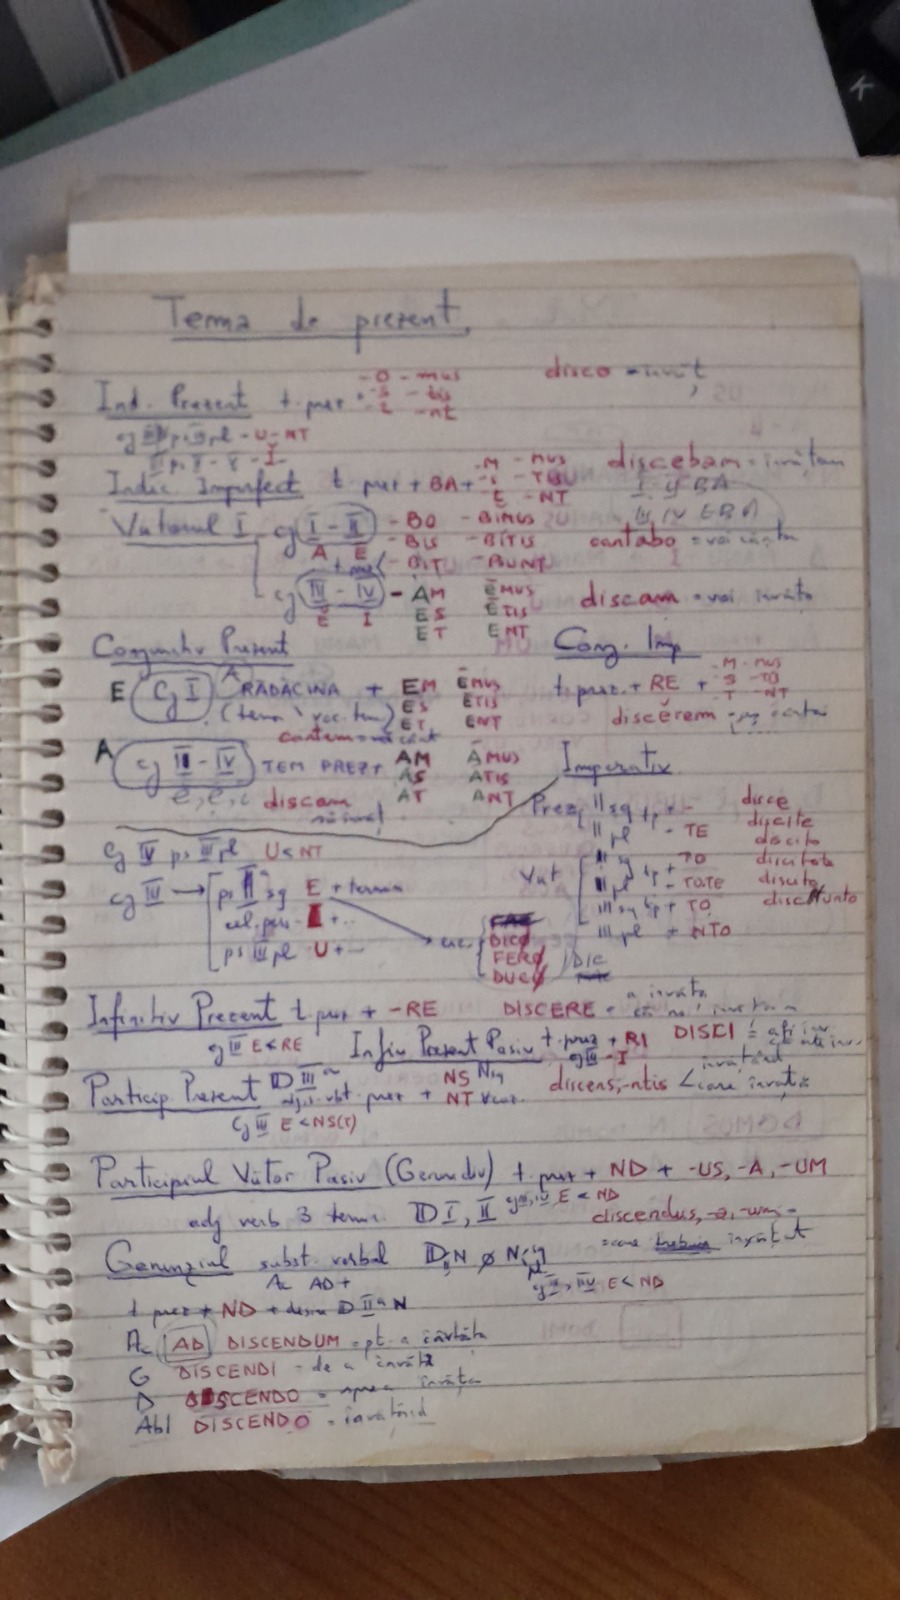 Tema de prezent
-O -mus
disco = învăț
Ind. Prezent t. prez + -s -tis
-t -nt
cj III ps III pl - U-NT
Indic Imperfect t. prez + BA + -M -MUS
-S -TIS
-T -NT
discebam = învățam
I, II BA
III IV EBA
Viitorul I cj I - II -BO -BIMUS
A E -BIS -BITIS
t. prez -BIT -BUNT
cantabo = voi cânta
cj III - IV - AM ĒMUS
E I ES ĒTIS
ET ENT
discam = voi învăța
Conjunctiv Prezent
E Cj I A RĂDĂCINA + EM ĒMUS
ES ĒTIS
ET ENT
cantem = să cânt
Conj. Imp
t. prez. + RE + -M -MUS
-S -TIS
-T -NT
discĕrem
A cj II - IV TEM PREZ + AM ĀMUS
AS ATIS
AT ANT
discam
să învăț
Imperativ
Prez. II sg tp + - disce
II pl - TE discite
Viit II sg tp + TO discito
II pl - TOTE discitote
III sg tp + TO discito
III pl + NTO discunto
Cj IV ps III pl U < NT
cj III → ps II sg E + termin
cel. pers - I + ...
ps III pl U + ...
DICO
FERO
DUCO
DIC
Infinitiv Prezent t. prez + -RE DISCERE = a învăța
cj III E < RE
Infin Prezent Pasiv t. prez + RI
cj III - I
DISCI = a fi înv.
Particip Prezent D III a
t. prez + NS N sg
NT
discens, -ntis < învățând
care învață
Cj III E < NS(T)
Participiul Viitor Pasiv (Gerundiv) t. prez + ND + -US, -A, -UM
adj verb 3 term. D I, II cj III, IV E < ND
discendus, -a, -um =
= care trebuie învățat
Gerunziul subst verbal D II N Ø N sg
Ac AD +
cj III, IV E < ND
t prez + ND + desin D II a N
Ac AD DISCENDUM = pt. a învăța
G DISCENDI = de a învăța
D DISCENDO = spre a învăța
Abl DISCENDO = învățând